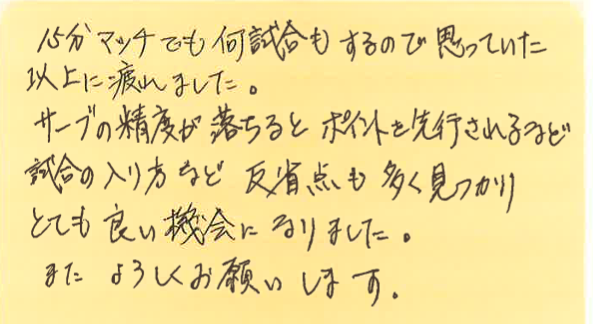 15分マッチでも何試合もするので思っていた
以上に疲れました。
サーブの精度が落ちるとポイントを先行されるなど
試合の入り方など反省点も多く見つかり
とても良い機会になりました。
またよろしくお願いします。